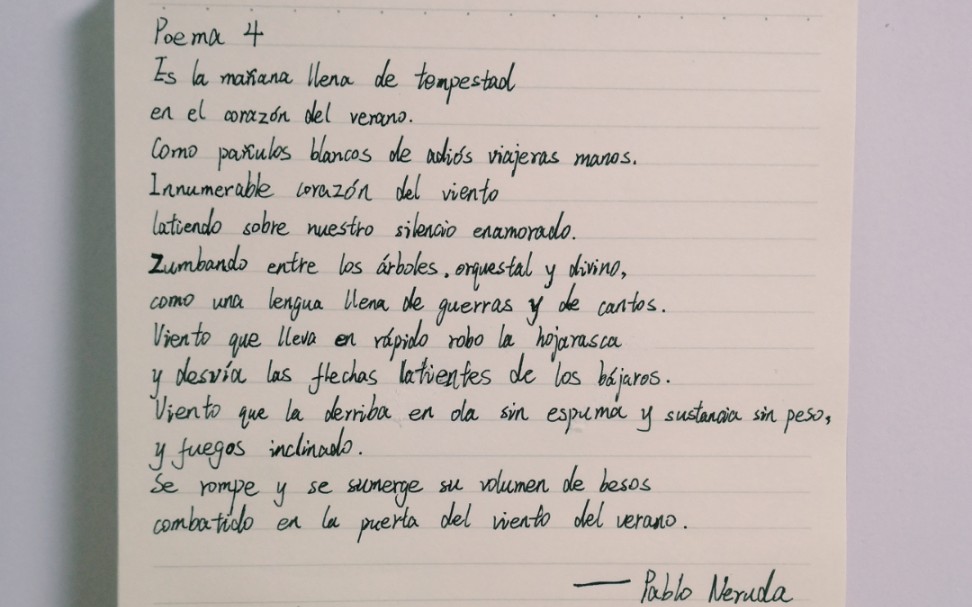 Poema 4
Es la mañana llena de tempestad
en el corazón del verano.
Como pañulos blancos de adiós viajeras manos.
Innumerable corazón del viento
latiendo sobre nuestro silencio enamorado.
Zumbando entre los árboles, orquestal y divino,
como una lengua llena de guerras y de cantos.
Viento que lleva en rápido robo la hojarasca
y desvía las flechas latientes de los bájaros.
Viento que la derriba en ola sin espuma y sustancia sin peso,
y fuegos inclinado.
Se rompe y se sumerge su volumen de besos
combatido en la puerta del viento del verano.
— Pablo Neruda